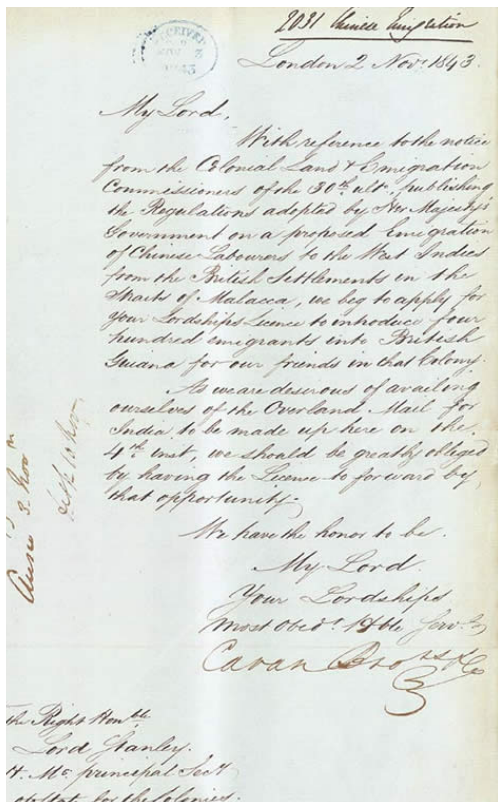 2031 Chinese Emigration
RECEIVED
1843
London 2 Nov.r 1843.
My Lord,
With reference to the notice
from the Colonial Land & Emigration
Commissioners of the 30th ulto. publishing
the Regulations adopted by Her Majesty's
Government on a proposed Emigration
of Chinese Labourers to the West Indies
from the British Settlements in the
Straits of Malacca, we beg to apply for
your Lordships Licence to introduce four
hundred emigrants into British
Guiana for our friends in that Colony.
As we are desirous of availing
ourselves of the Overland Mail for
India to be made up here on the
4th inst, we should be greatly obliged
by having the Licence to forward by
that opportunity.
We have the honor to be.
My Lord.
Your Lordships
most Obedt. Hble Servts
Cavan Brors & Co
The Right Honble.
Lord Stanley.
H. Ms. principal Secy
of State for the Colonies.
3 Novr